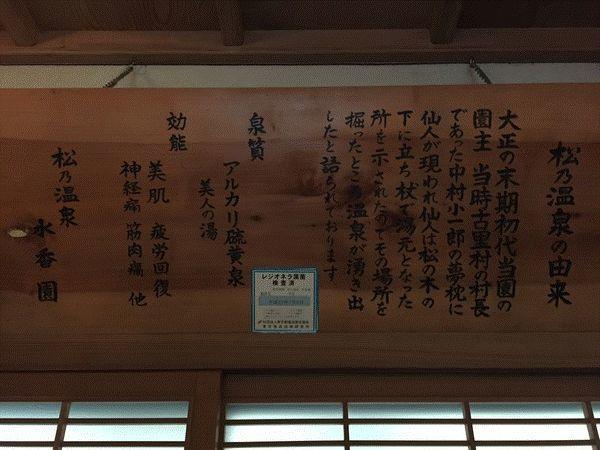 松乃温泉の由来
大正の末期初代当園の
園主 当時古里村の村長
であった中村小一郎の夢枕に
仙人が現われ仙人は松の木の
下に立ち杖で湯元となった
所を示されたのでその場所を
掘ったところ温泉が湧き出
したと語られております
泉質
アルカリ硫黄泉
美人の湯
効能
美肌 疲労回復
神経痛 筋肉痛 他
松乃温泉
水香園
レジオネラ属菌
検査済